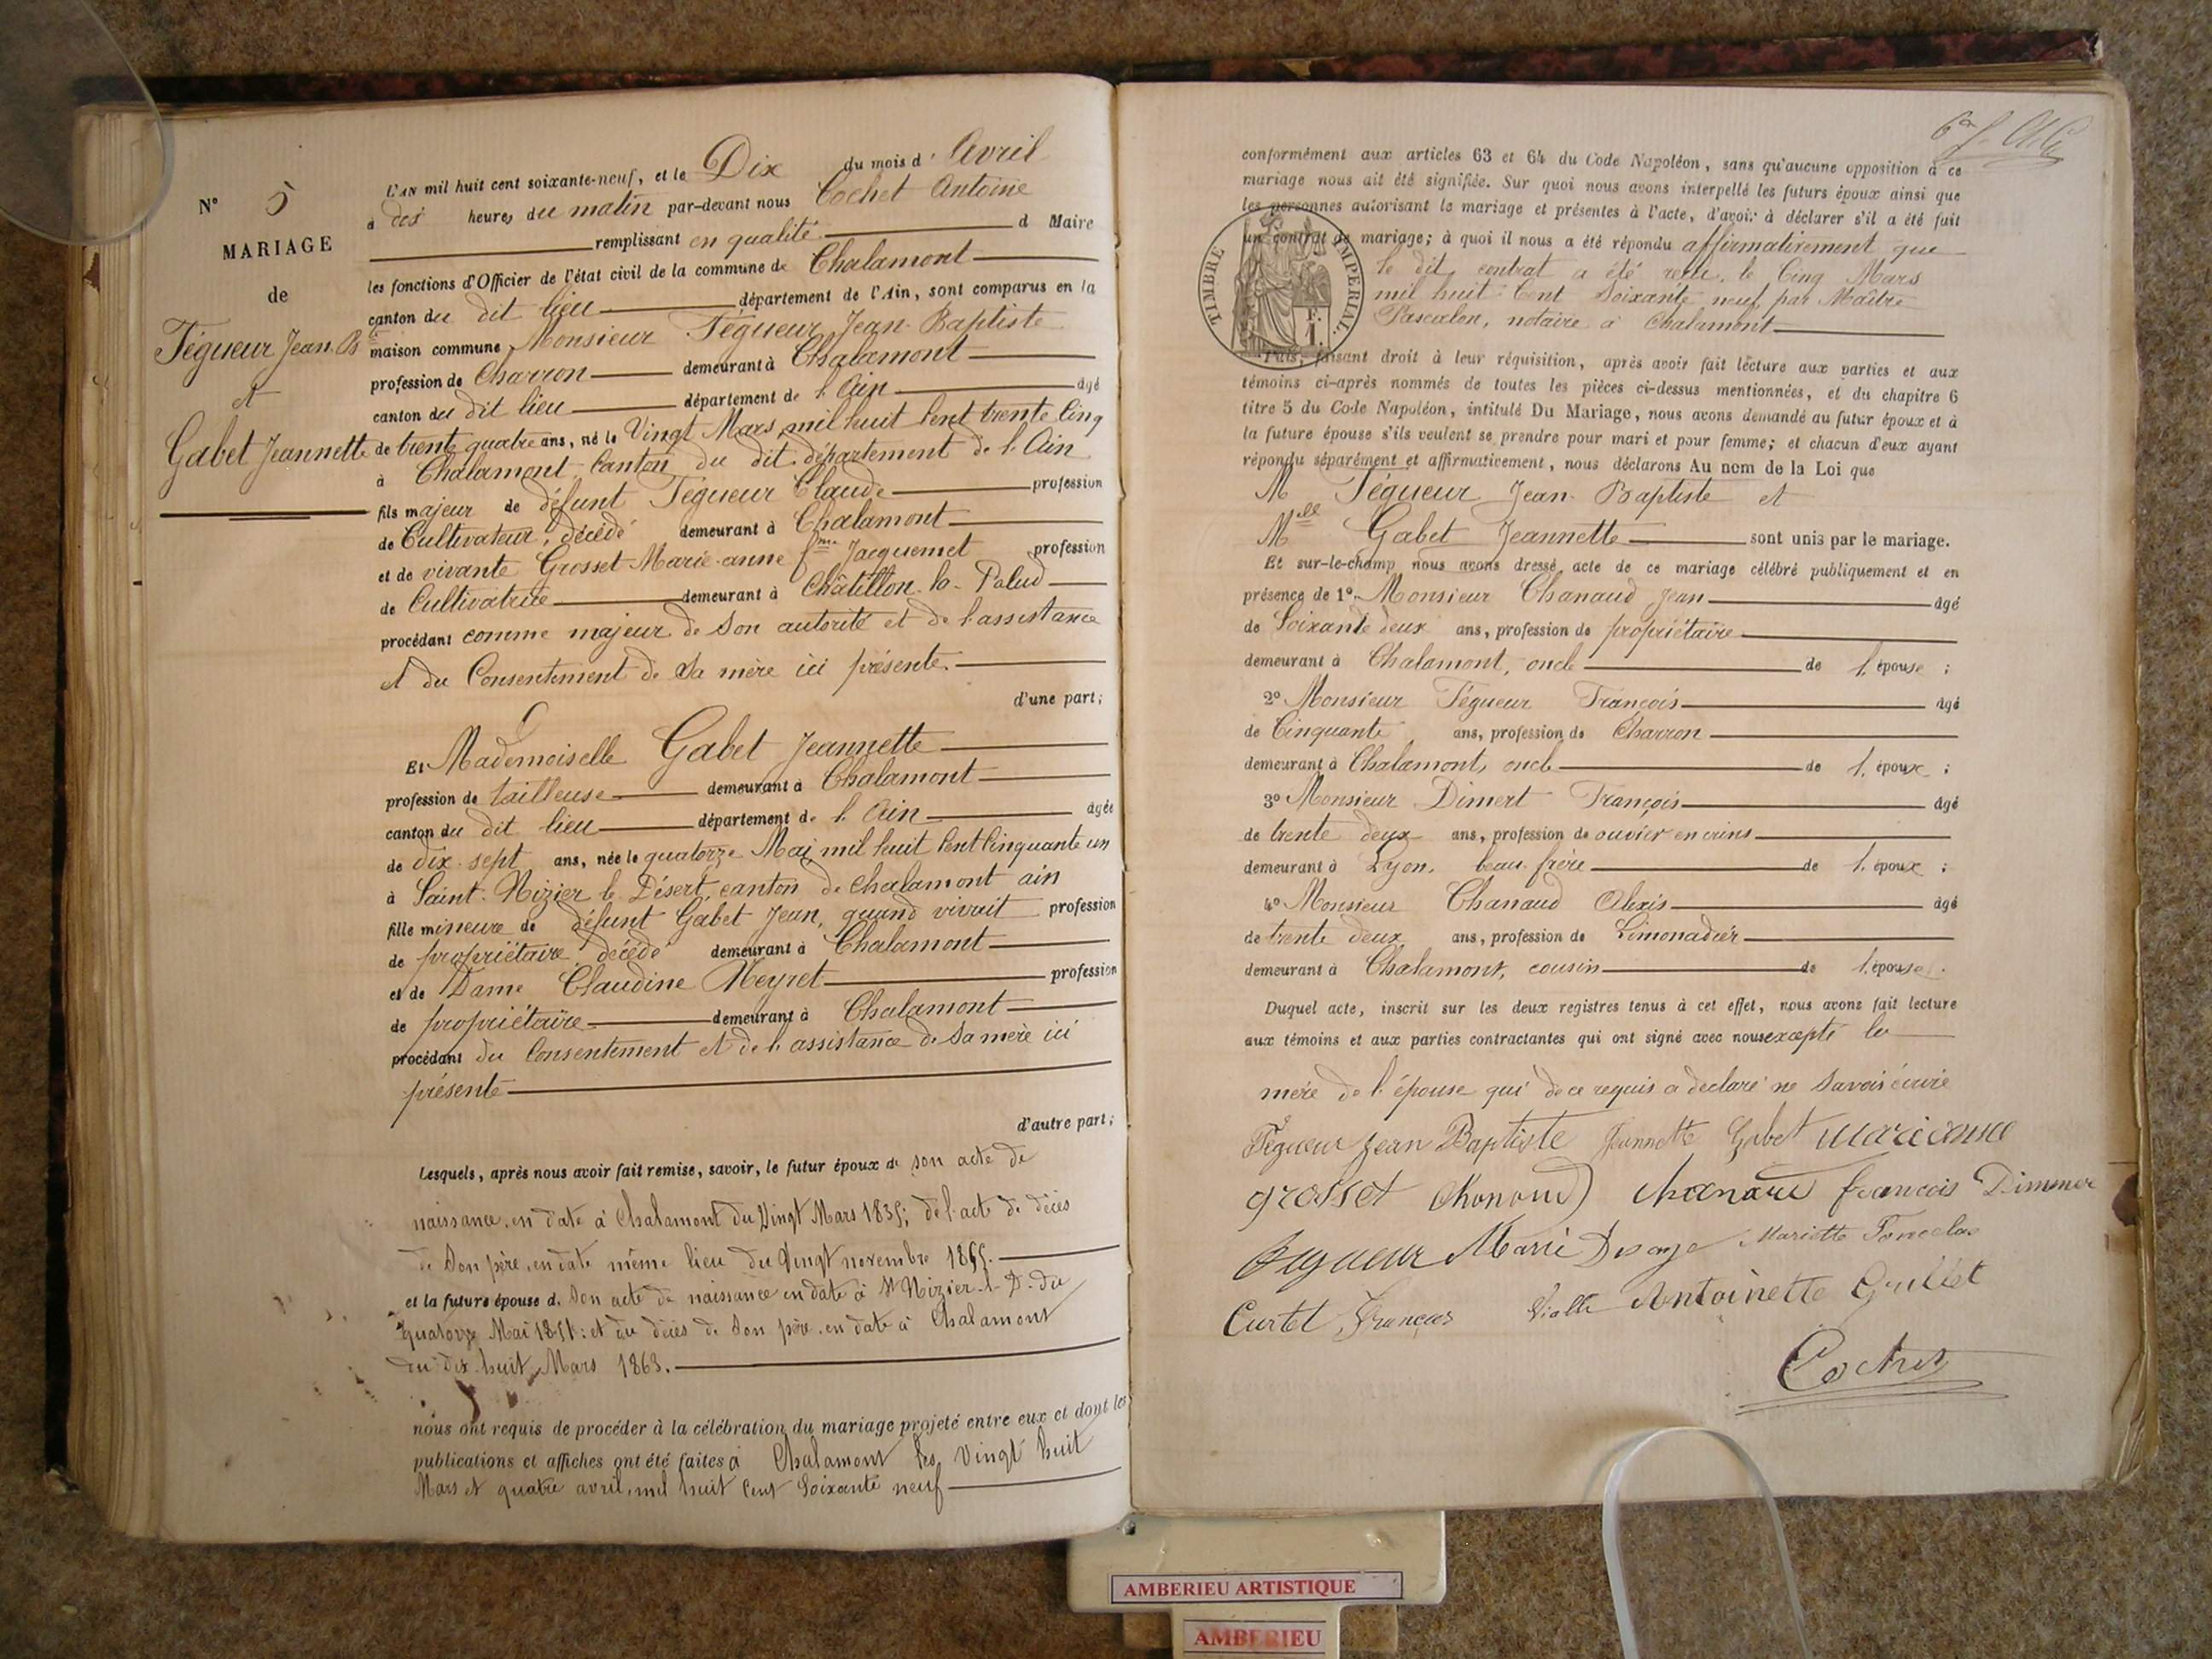 N° 5
MARIAGE
de
Tégueur Jean Bte
et
Gabet Jeannette
L'AN mil huit cent soixante-neuf, et le Dix du mois d'Avril
à dix heures du matin par-devant nous Cochet Antoine
remplissant en qualité d Maire
les fonctions d'Officier de l'état civil de la commune de Chalamont
canton du dit lieu département de l'Ain, sont comparus en la
maison commune, Monsieur Tégueur Jean-Baptiste
profession de Charron demeurant à Chalamont
canton du dit lieu département de l'Ain âgé
de trente quatre ans, né le Vingt Mars mil huit Cent trente Cinq
à Chalamont Canton du dit département de l'Ain
fils majeur de défunt Tégueur Claude profession
de Cultivateur, décédé demeurant à Chalamont
et de vivante Grosset Marie-anne fme Jacquemet profession
de Cultivatrice demeurant à Châtillon-la-Palud
procédant comme majeur de Son autorité et de l'assistance
et du Consentement de Sa mère ici présente.
d'une part;
Et Mademoiselle Gabet Jeannette
profession de tailleuse demeurant à Chalamont
canton du dit lieu département de l'Ain âgée
de dix-sept ans, née le quatorze Mai mil huit Cent Cinquante un
à Saint-Nizier le Désert, canton de Chalamont ain
fille mineure de défunt Gabet Jean, quand vivait profession
de propriétaire décédé demeurant à Chalamont
et de Dame Claudine Neyret profession
de propriétaire demeurant à Chalamont
procédant du Consentement et de l'assistance de Sa mère ici
présente
d'autre part;
Lesquels, après nous avoir fait remise, savoir, le futur époux de son acte de
naissance, en date à Chalamont du Vingt Mars 1835; de l'acte de décès
de Son père, en date même lieu du Vingt novembre 1865.
et la future épouse d. Son acte de naissance en date à St Nizier-l-D. du
quatorze Mai 1851: et du décès de Son père, en date à Chalamont
du dix-huit Mars 1863.
nous ont requis de procéder à la célébration du mariage projeté entre eux et dont les
publications et affiches ont été faites à Chalamont les Vingt huit
Mars et quatre avril, mil huit Cent Soixante neuf
conformément aux articles 63 et 64 du Code Napoléon, sans qu'aucune opposition à ce
mariage nous ait été signifiée. Sur quoi nous avons interpellé les futurs époux ainsi que
les personnes autorisant le mariage et présentes à l'acte, d'avoir à déclarer s'il a été fait
un contrat de mariage; à quoi il nous a été répondu affirmativement que
le dit contrat a été reçu le Cinq Mars
mil huit Cent Soixante neuf, par Maître
Pascalon, notaire à Chalamont
TIMBRE IMPÉRIAL.
F. 1.
Puis, faisant droit à leur réquisition, après avoir fait lecture aux parties et aux
témoins ci-après nommés de toutes les pièces ci-dessus mentionnées, et du chapitre 6
titre 5 du Code Napoléon, intitulé Du Mariage, nous avons demandé au futur époux et à
la future épouse s'ils veulent se prendre pour mari et pour femme; et chacun d'eux ayant
répondu séparément et affirmativement, nous déclarons Au nom de la Loi que
M Tégueur Jean-Baptiste et
Melle Gabet Jeannette sont unis par le mariage.
Et sur-le-champ nous avons dressé acte de ce mariage célébré publiquement et en
présence de 1° Monsieur Chanaud Jean âgé
de Soixante deux ans, profession de propriétaire
demeurant à Chalamont, oncle de l'épouse;
2° Monsieur Tégueur François âgé
de Cinquante ans, profession de Charron
demeurant à Chalamont, oncle de l'époux;
3° Monsieur Dimert François âgé
de trente deux ans, profession de ouvrier en crins
demeurant à Lyon, beau-frère de l'époux;
4° Monsieur Chanaud Alexis âgé
de trente deux ans, profession de Limonadier
demeurant à Chalamont, cousin de l'épouse.
Duquel acte, inscrit sur les deux registres tenus à cet effet, nous avons fait lecture
aux témoins et aux parties contractantes qui ont signé avec nous excepté la
mère de l'épouse qui de ce requis a déclaré ne Savoir écrire
Tégueur Jean Baptiste Jeannette Gabet marie anne
grosset Chonoud chanaud francois Dimmer
Tégueur Marie Mariette
Curtet François Violle Antoinette Grillet
Cochet
AMBERIEU ARTISTIQUE
AMBERIEU